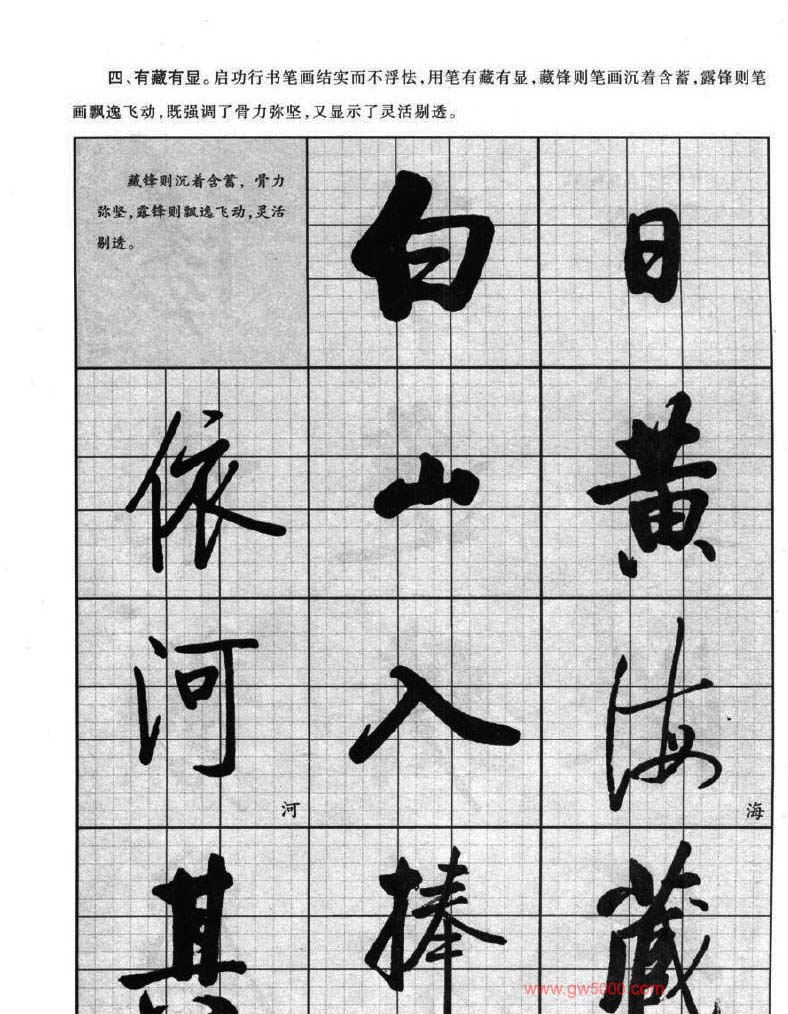 四、有藏有显。启功行书笔画结实而不浮怯,用笔有藏有显,藏锋则笔画沉着含蓄,露锋则笔
画飘逸飞动,既强调了骨力弥坚,又显示了灵活剔透。
藏锋则沉着含蓄,骨力
弥坚,露锋则飘逸飞动,灵活
剔透。
白 日
依 山 黄
河 入 海
河 海
其 捧 藏
www.gw5000.com